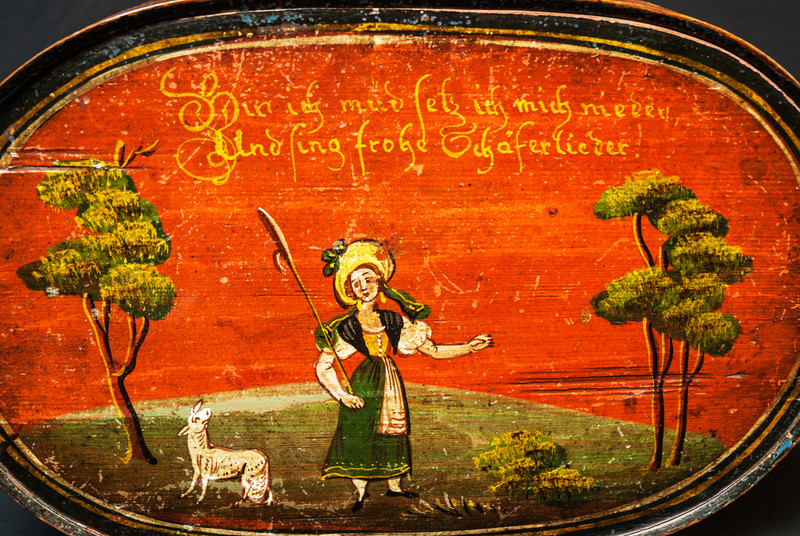 Bin ich müd setz ich mich nieder,
Und sing frohe Schäferlieder.